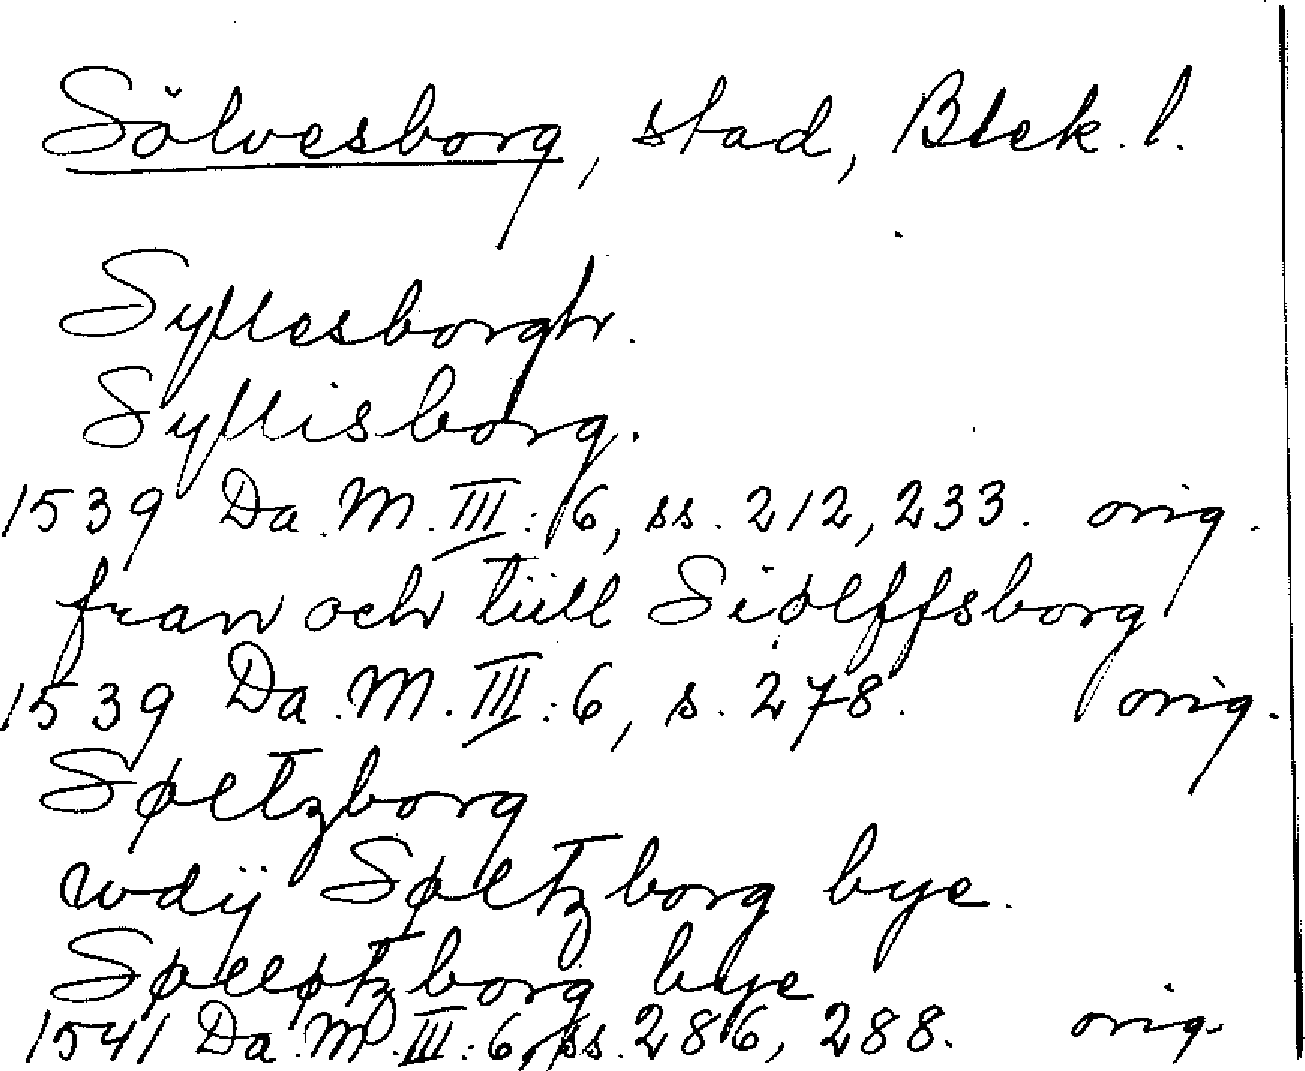 Sölvesborg, stad, Blek. l.
Syllesborgh.
Syllisborg.
1539 Da. M. III: 6, ss. 212, 233. orig.
fran och tiill Siølffsborg
1539 Da. M. III: 6, s. 278. orig.
Søltzborg
wdij Søltzborg bye.
Sølløtzborg bye
1541 Da. M. III: 6, ss. 286, 288. orig.